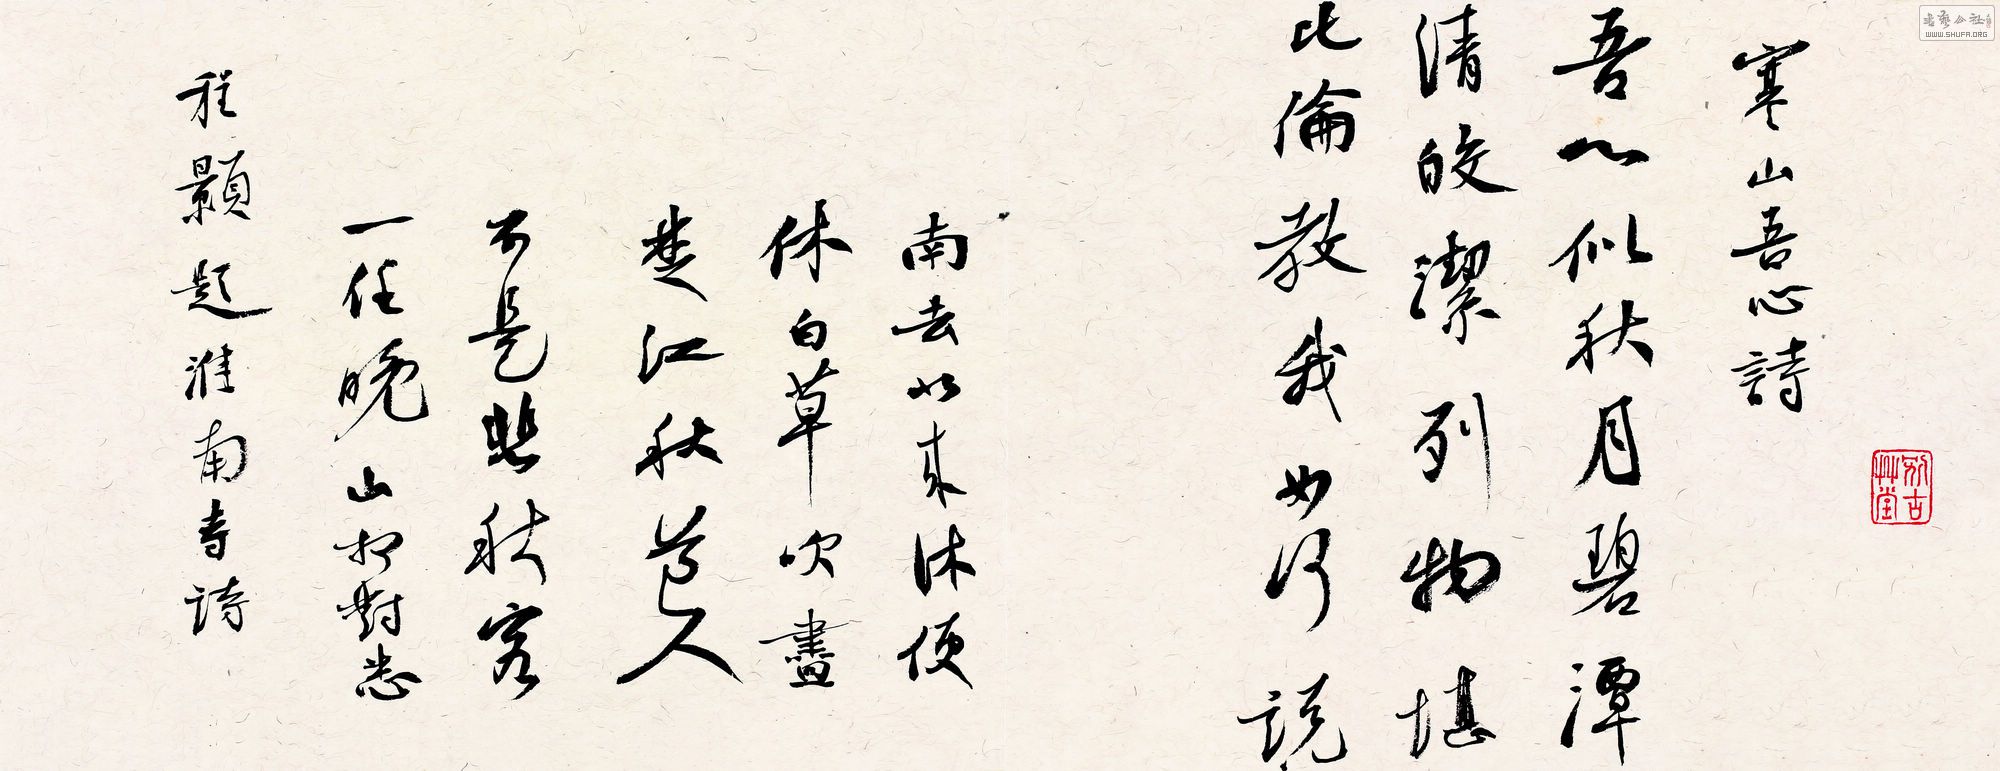 书艺公社
WWW.SHUFA.ORG
寒山吾心詩
吾心似秋月碧潭
清皎潔列物堪
比倫教我如何説
南去北来休便
休白草吹盡
楚江秋道人
不是悲秋客
一任晚山相對愁
程顥題淮南寺詩